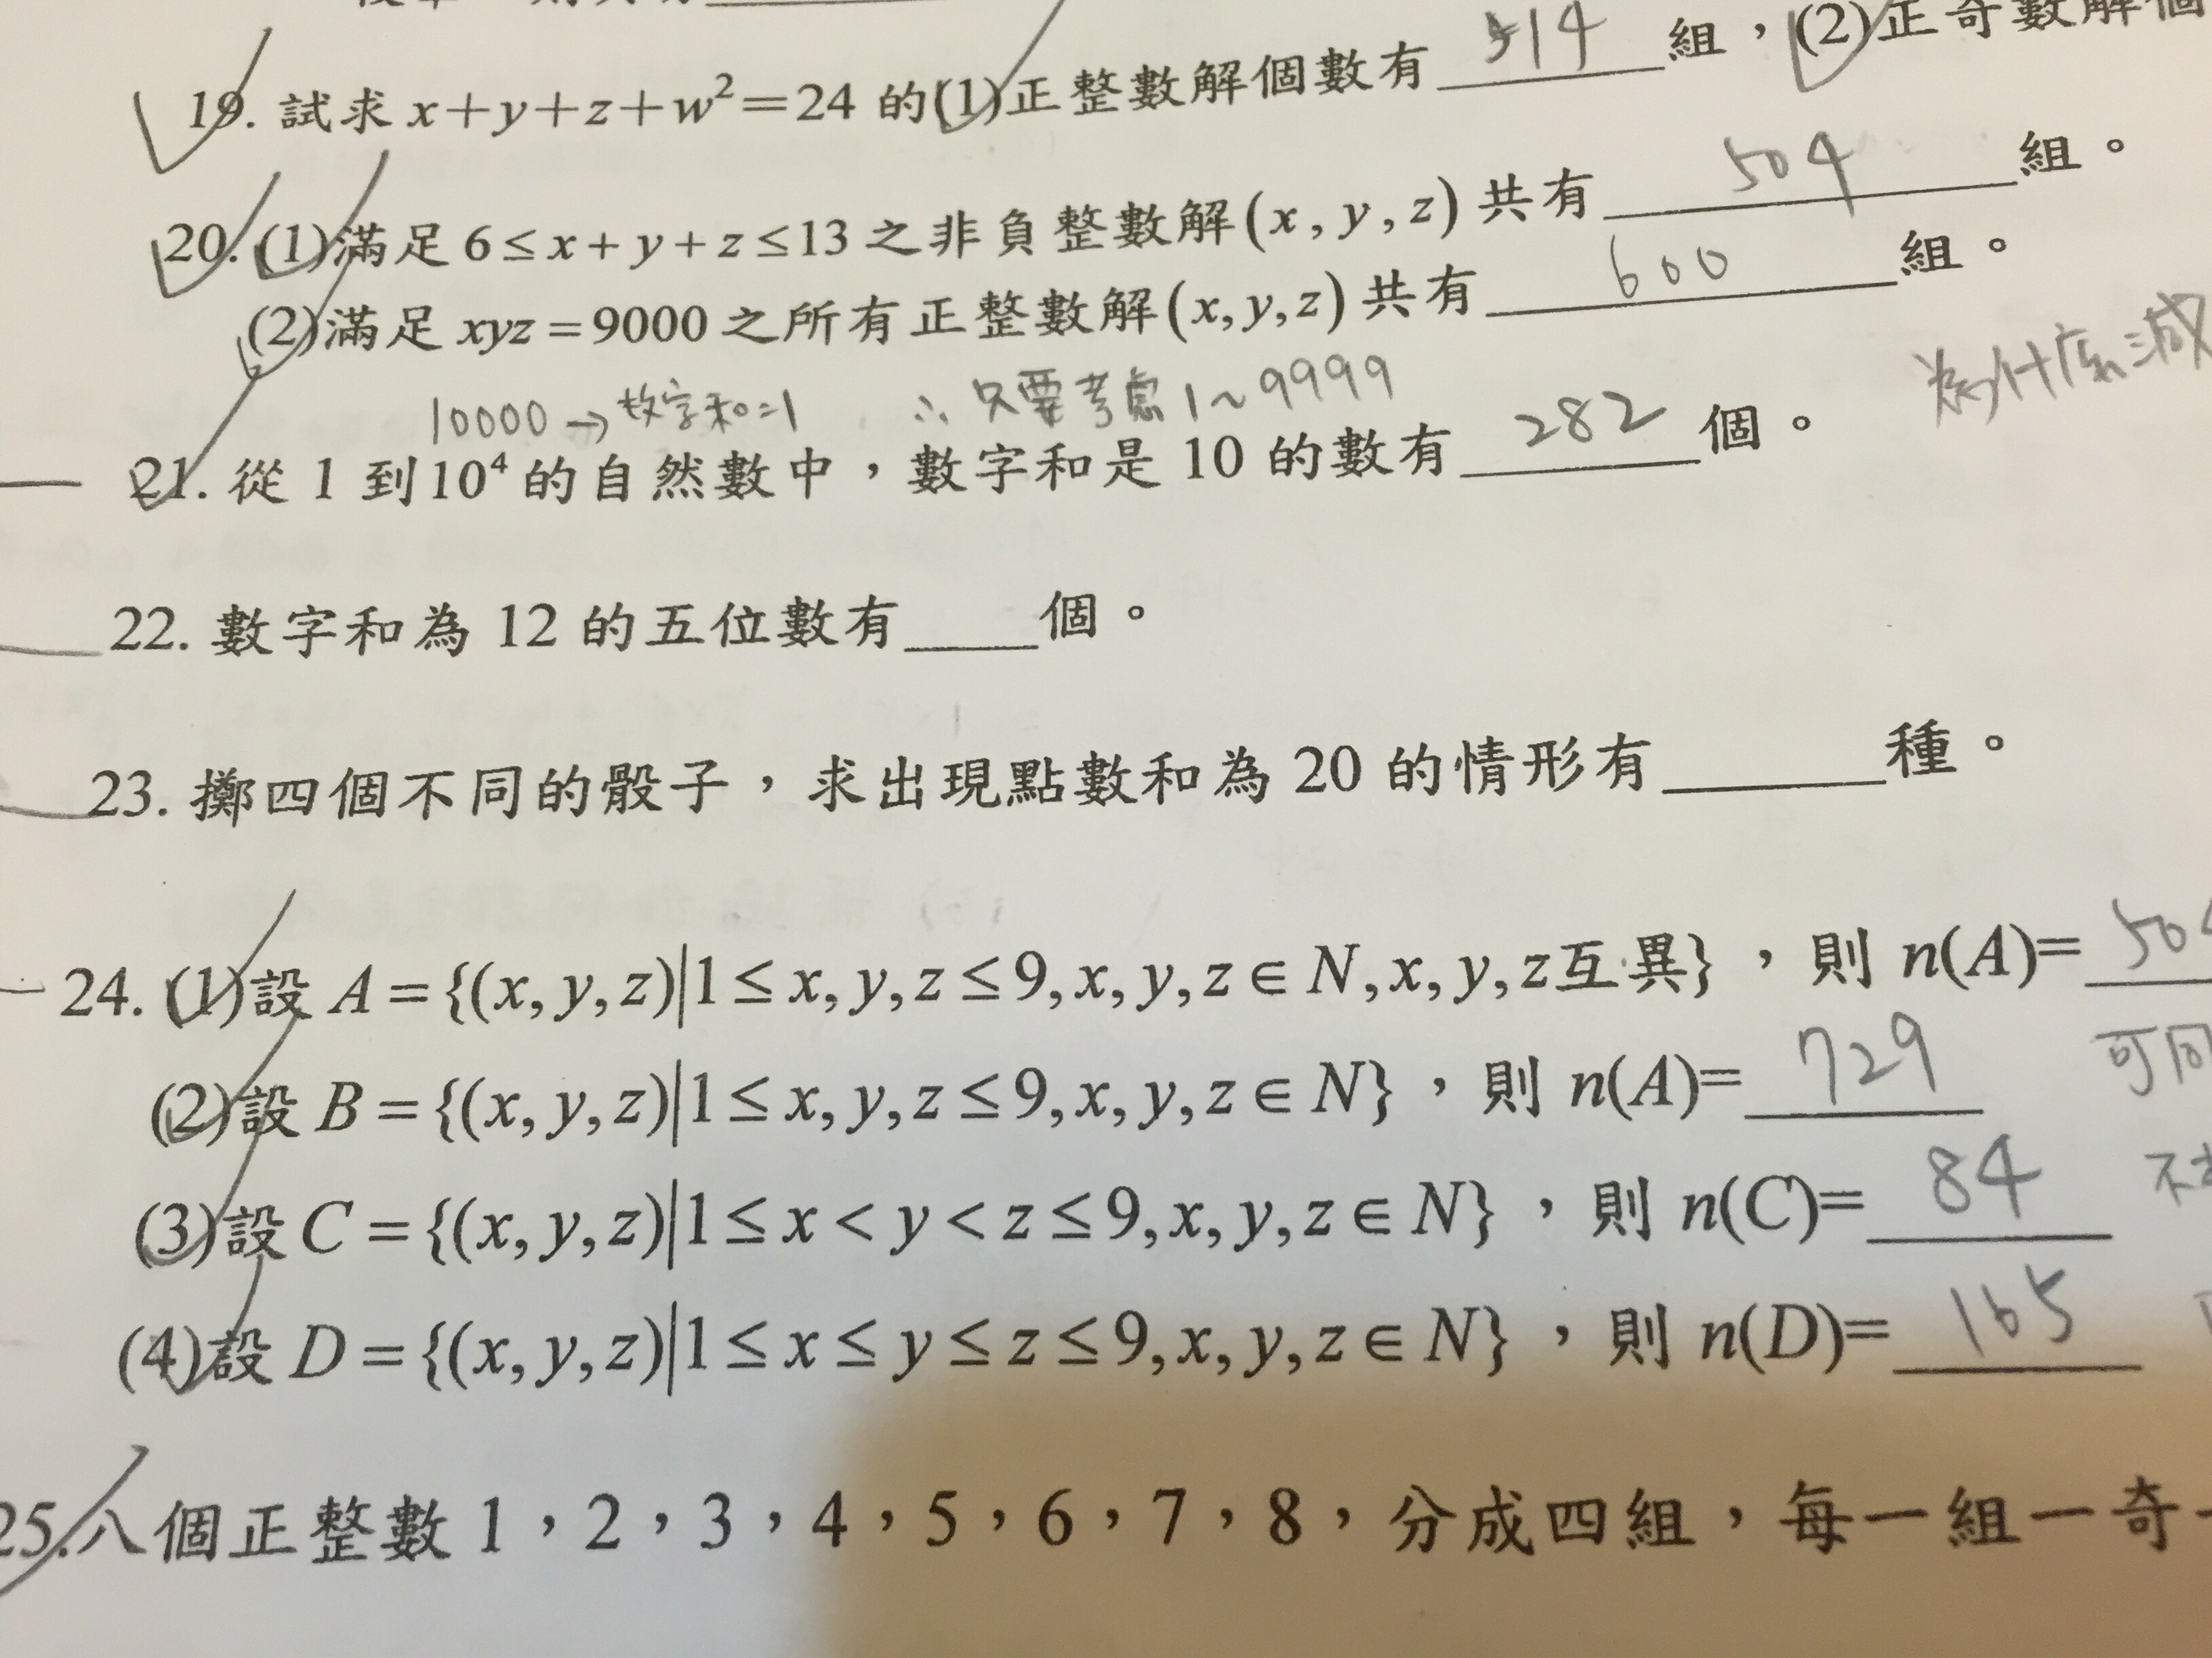 19. 試求 x+y+z+w²=24 的(1)正整數解個數有 514 組，(2)正奇數解個
20. (1)滿足 6≤x+y+z≤13 之非負整數解(x,y,z) 共有 504 組。
(2)滿足 xyz=9000 之所有正整數解(x,y,z) 共有 600 組。
10000→數字和=1 ∴只要考慮1~9999
為什麼減
21. 從 1 到 10⁴ 的自然數中，數字和是 10 的數有 282 個。
22. 數字和為 12 的五位數有____個。
23. 擲四個不同的骰子，求出現點數和為 20 的情形有______種。
24. (1)設 A={(x,y,z)|1≤x,y,z≤9,x,y,z∈N,x,y,z互異}，則 n(A)= 504
(2)設 B={(x,y,z)|1≤x,y,z≤9,x,y,z∈N}，則 n(A)= 729 可同
(3)設 C={(x,y,z)|1≤x<y<z≤9,x,y,z∈N}，則 n(C)= 84 不
(4)設 D={(x,y,z)|1≤x≤y≤z≤9,x,y,z∈N}，則 n(D)= 165
25.八個正整數 1，2，3，4，5，6，7，8，分成四組，每一組一奇